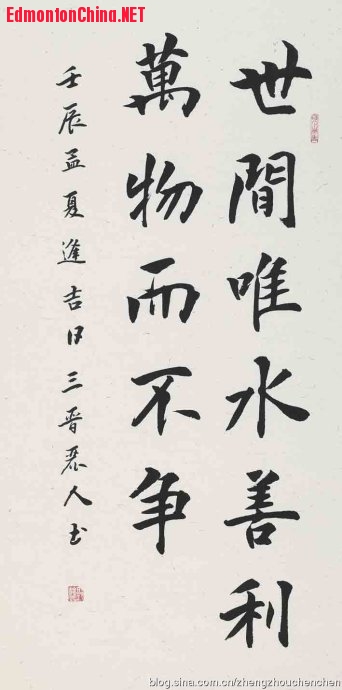 EdmontonChina.NET
世間唯水善利
萬物而不争
壬辰孟夏逢吉日三晋晨人书
blog.sina.com.cn/zhengzhouchenchen